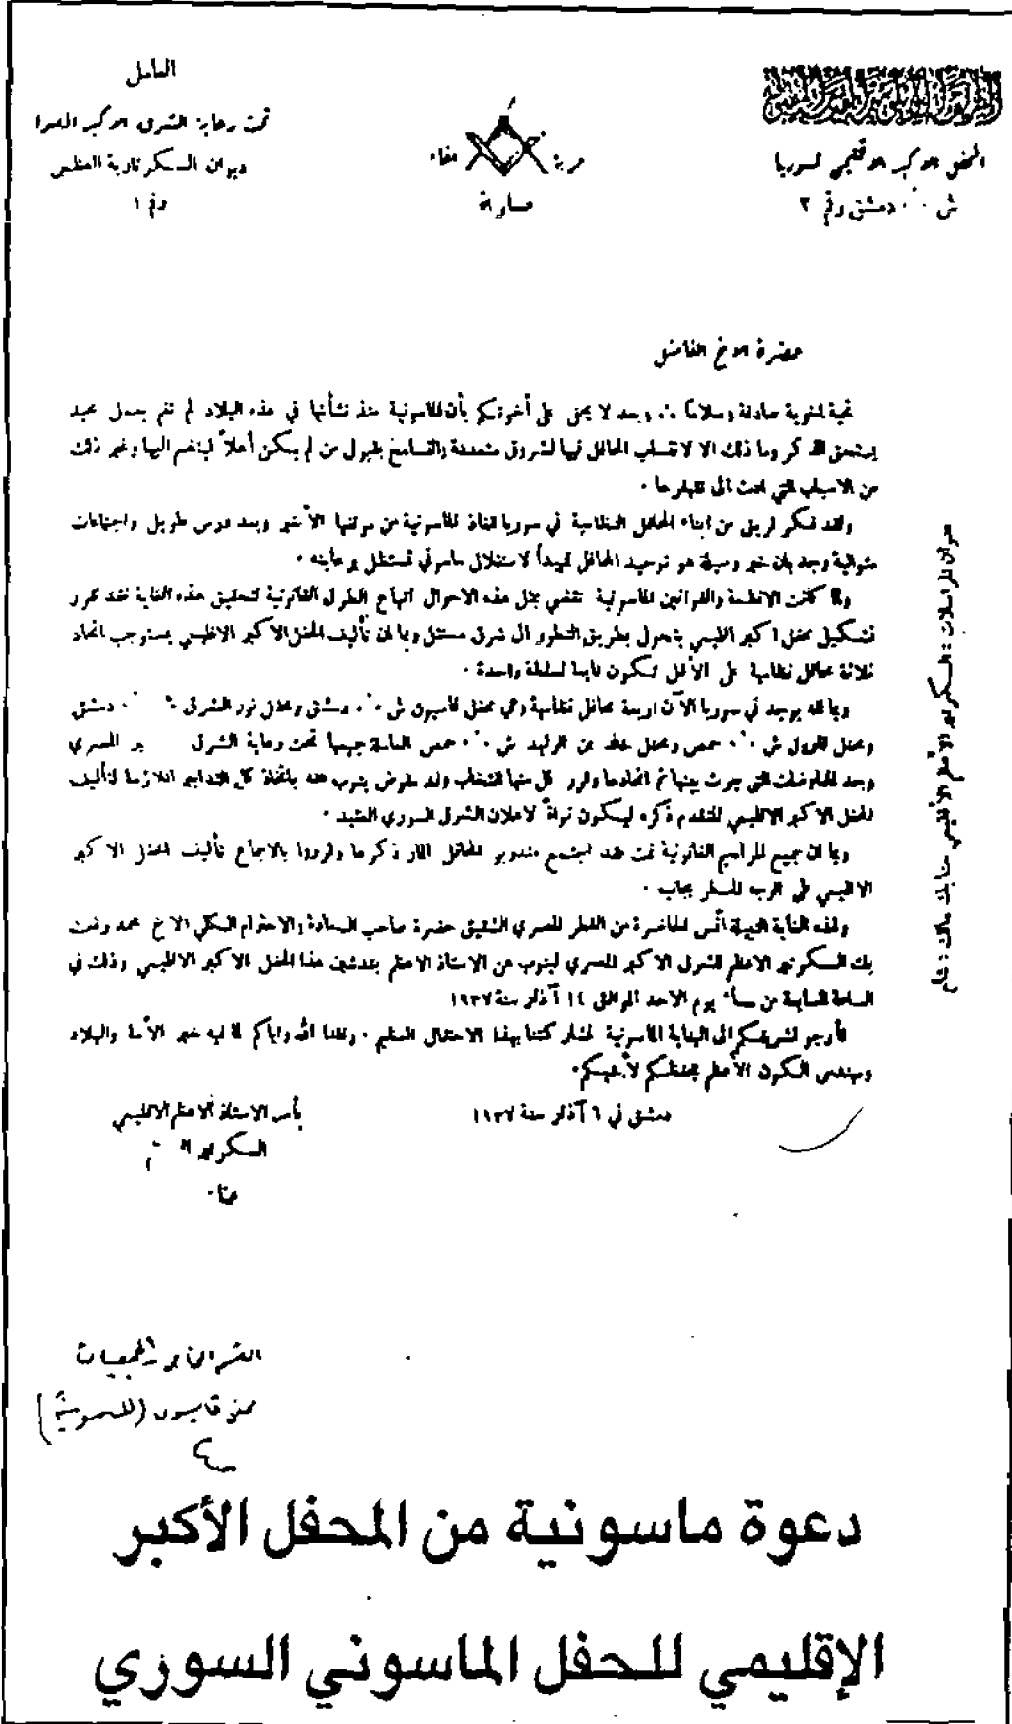 العامل
تحت رعاية الشرق الاكبر المصرا
ديوان السكرتارية العظمى
رقم ١
حرية
اخاء
مساواة
المحفل الاكبر الاقليمي لسوريا
ش ∴ دمشق رقم ٢
حضرة الاخ الفاضل
تحية اخوية صادقة وسلاماً ∴ وبعد لا يخفى على أخوتكم بأن الماسونية منذ نشأتها في هذه البلاد لم تقم بعمل مجيد
يستحق الذكر وما ذلك الا لانقسام المحافل فيها لشروق متعددة والتسامح بقبول من لم يكن أهلاً لينضم اليها وغير ذلك
من الاسباب التي ادت الى تقهقرها ٠
ولقد فكر فريق من ابناء المحافل النظامية في سوريا انقاذ الماسونية من موقفها الأخير وبعد درس طويل واجتماعات
متوالية وجد بان خير وسيلة هو توحيد المحافل تمهيداً لاستقلال ماسوني تستظل برعايته ٠
ولما كانت الانظمة والقوانين الماسونية تقضي بمثل هذه الاحوال اتباع الطرق القانونية لتحقيق هذه الغاية فقد تقرر
تشكيل محفل اكبر اقليمي يتحول بطريق التطور الى شرق مستقل وبما ان تأليف المحفل الاكبر الاقليمي يستوجب اتحاد
ثلاثة محافل نظامية على الأقل لتكون تابعة لسلطة واحدة ٠
وبما انه يوجد في سوريا الآن اربعة محافل نظامية وهي محفل قاسيون ش ∴ دمشق ومحفل نور الشرق ش ∴ دمشق
ومحفل ش ∴ حمص ومحفل خالد بن الوليد ش ∴ حمص العاملة جميعها تحت رعاية الشرق بر المصري
وبعد المفاوضات التي جرت بينها تم اتحادها وقرر كل منها انتخاب وفد مفوض ينوب عنه باتخاذ كل التدابير اللازمة لتأليف
المحفل الاكبر الاقليمي المتقدم ذكره ليكون نواة لاعلان الشرق السوري العتيد ٠
وبما ان جميع المراسيم القانونية تمت فقد اجتمع مندوبو المحافل المار ذكرها وقرروا بالاجماع تأليف المحفل الاكبر
الاقليمي
ولهذه الغاية النبيلة أتى لحاضرة من القطر المصري الشقيق حضرة صاحب السعادة والاحترام الكلي الاخ محمد رفعت
بك السكرتير الاعظم للشرق الاكبر المصري لينوب عن الاستاذ الاعظم بتدشين هذا المحفل الاكبر الاقليمي وذلك في
الساعة السابعة من مساء يوم الاحد الموافق ١٤ آذار سنة ١٩٣٧
فأرجو تشريفكم الى البناية الماسونية لمشاركتنا بهذا الاحتفال العظيم ٠ وفقنا الله واياكم لما فيه خير الأمة والبلاد
ومهندس الكون الأعظم يحفظكم لأخيكم٠
دمشق في ٦ آذار سنة ١٩٣٧
بأمر الاستاذ الاعظم الاقليمي
السكرتير
عنوان المراسلات : السكرتير الأعظم الأقليمي
محفل قاسيون (الماسونية)
دعوة ماسونية من المحفل الأكبر
الإقليمي للحفل الماسوني السوري